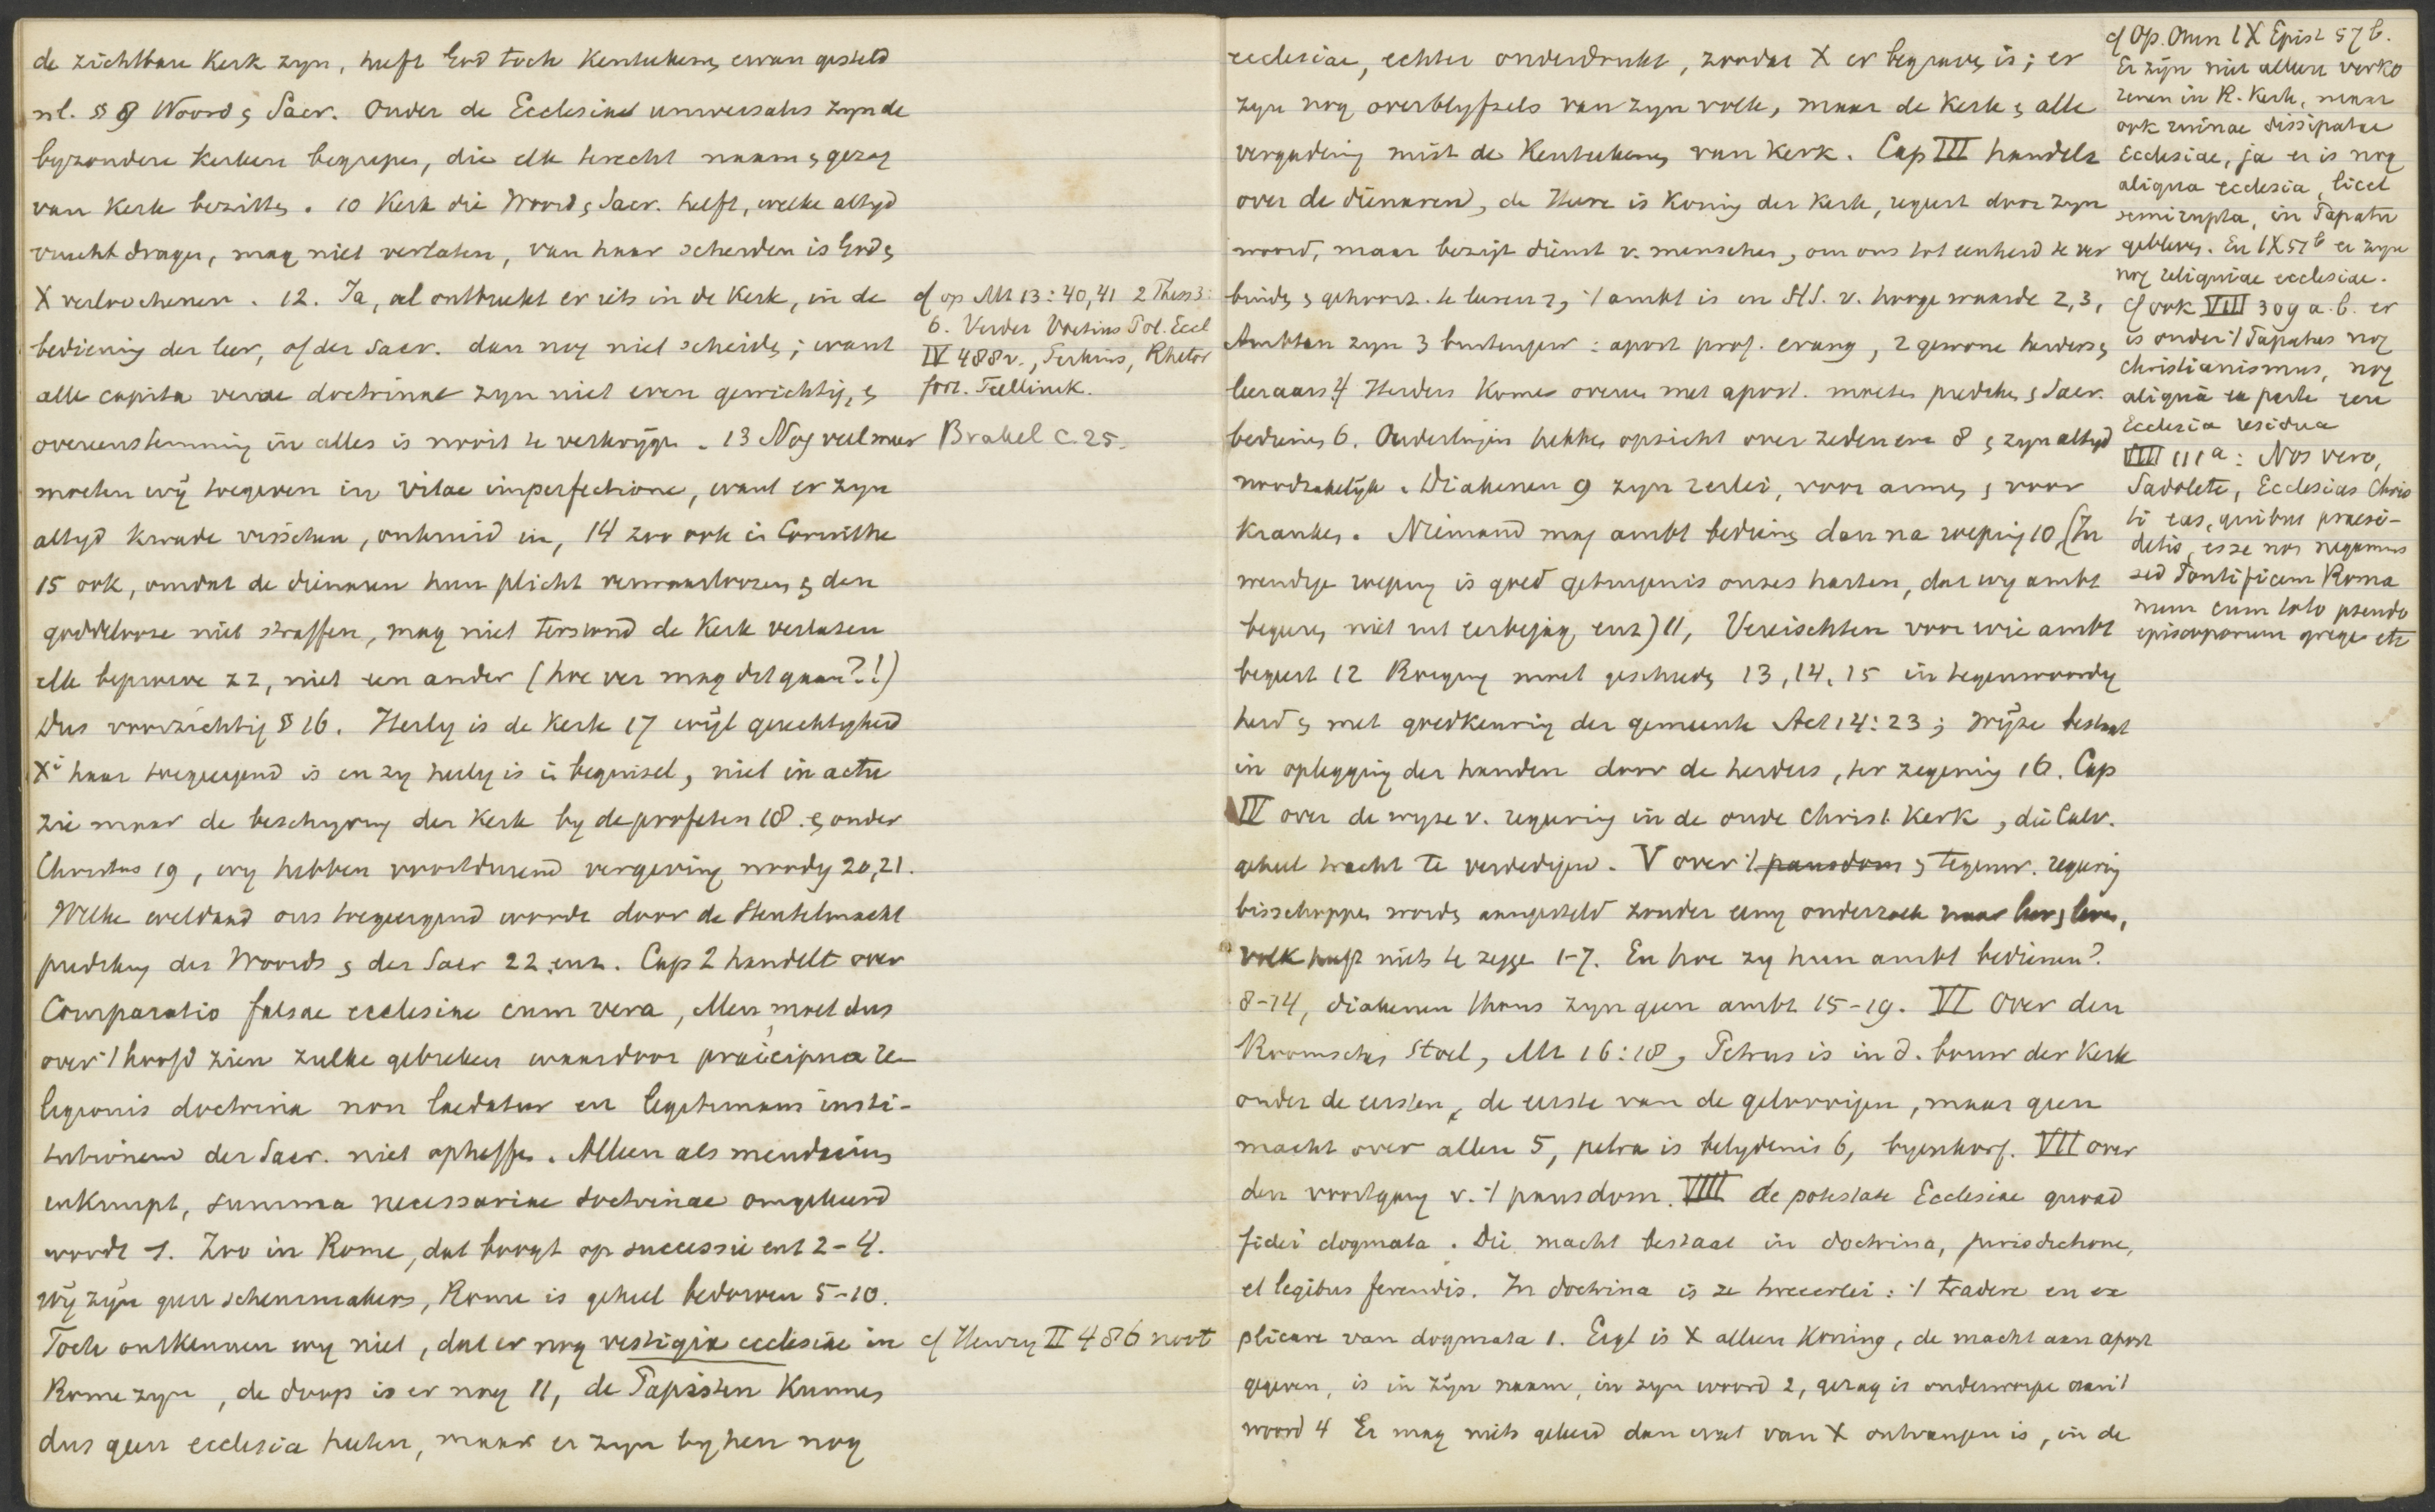 de zichtbare Kerk zyn, heeft God toch Kenteekens ervan gesteld
nl. § 9 Woord & Sacr. Onder de Ecclesiae universalis zyn de
byzondere Kerken begrepen, die elk terecht naam & gezag
van Kerk bezitten. 10 Kerk die Woord & Sacr. heeft, welke altyd
vrucht dragen, mag niet verlaten, van haar scheiden is God &
X verloochenen. 12. Ja, al ontbreekt er iets in de Kerk, in de
bediening der leer, of der Sacr. dan nog niet scheiden; want
alle capita verae doctrinae zyn niet even gewichtig, &
overeenstemming in alles is nooit te verkrygen. 13 Nog veel meer
moeten wÿ toegeven in vitae imperfectione, want er zyn
altyd kwade visschen, onkruid in, 14 zoo ook in Corinthe
15 ook, omdat de dienaren hun plicht verwaarloozen & den
goddelooze niet straffen, mag niet terstond de Kerk verlaten
elk beproeve zz, niet een ander (hoe ver mag dit gaan?!)
Dus voorzichtig § 16. Heilig is de Kerk 17 wÿl gerechtigheid
Xi haar toegeeigend is en zy heilig is in beginsel, niet in actu
zie maar de beschryving der Kerk by de profeten 18. & onder
Christus 19, wy hebben voortdurend vergeving noodig 20, 21.
Welke weldaad ons toegeeigend wordt door de Sleutelmacht
prediking des Woords & der Sacr 22 enz. Cap 2 handelt over
Comparatio falsae ecclesiae cum vera, Men moet dus
over 't hoofd zien zulke gebreken waardoor praecipua re-
ligionis doctrina non laedatur en legitimam insti-
tutionem der Sacr. niet opheffen. Alleen als mendacium
inkruipt, summa necessariae doctrinae omgekeerd
wordt 1. Zoo in Rome, dat boogt op successie enz 2-4.
Wÿ zÿn geen scheurmakers, Rome is geheel bedorven 5-10.
Toch ontkennen wy niet, dat er nog vestigia ecclesiae in
Rome zyn, de doop is er nog 11, de Papisten kunnen
dus geen ecclesia heeten, maar er zyn by hen nog
cf op Mt 13:40,41 2 Thess 3:
6. Verder Voetius Pol. Eccl
IV 488v., Perkins, Rhetor
fort. Teellinck.
Brakel C. 25.
cf Henry II 486 noot
ecclesiae, echter onderdrukt, zoodat X er begraven is; er
zyn nog overblyfsels van zyn volk, maar de Kerk & alle
vergadering mist de Kenteekens van Kerk. Cap III handelt
over de dienaren, de Heere is Koning der Kerk, regeert door zyn
woord, maar bezigt dienst v. menschen, om ons tot eenheid te ver
binden & gehoorz. te leeren 1, 't ambt is in H/S. v. hooge waarde 2, 3,
Ambten zyn 3 buitengew: apost prof. evang, 2 gewone herders &
leeraars 4 Herders komen overeen met apost. moeten prediken & Sacr.
bedienen 6. Ouderlingen hebben opzicht over zeden enz 8 & zyn altyd
noodzakelÿk. Diakenen 9 zyn 2erlei, voor armen & voor
kranken. Niemand mag ambt bedienen dan na roeping 10 (In
wendige roeping is goed getuigenis onzes harten, dat wy ambt
begeeren niet uit eerbejag, enz) 11, Vereischten voor wie ambt
begeert 12 Roeping moet geschieden 13, 14, 15 in tegenwoordig
heid & met goedkeuring der gemeente Act 14:23; Wÿze bestaat
in oplegging der handen door de herders, ter zegening 16. Cap
IV over de wyze v. regeering in de oude Christ. Kerk, die Calv.
geheel tracht te verdedigen. V over 't pausdom & tegenw. regering
bisschoppen worden aangesteld zonder eenig onderzoek naar leer & leven,
volk heeft niets te zeggen 1-7. En hoe zy hun ambt bedienen?
8-14, diakenen thans zyn geen ambt 15-19. VI Over den
Roomschen Stoel, Mt 16:18, Petrus is in d. bouw der Kerk
onder de eersten, de eerste van de geloovigen, maar geen
macht over allen 5, petra is belydenis 6, byenkorf. VII over
den voortgang v. 't pausdom. VIII de potestate Ecclesiae quoad
fidei dogmata. Die macht bestaat in doctrina, jurisdictione,
et legibus ferendis. In doctrina is ze tweeerlei: 't tradere en ex
plicare van dogmata 1. Eigl is X alleen Koning, de macht aan apost
gegeven, is in zÿn naam, in zyn woord 2, gezag is onderworpen aan 't
woord 4 Er mag niets geleerd dan wat van X ontvangen is, in de
cf Op. Omn IX Epist 57 b.
Er zÿn niet alleen verko
renen in R. Kerk, maar
ook ruinae dissipatae
Ecclesiae, ja er is nog
aliqua ecclesia, licet
semirupta, in Papatu
gebleven. En IX 51b er zyn
nog reliquiae ecclesiae.
cf ook VIII 309 a. b. er
is onder 't Papatus nog
Christianismus, nog
aliqua ex parte
Ecclesia residua
VIII 111a: Nos vero,
Sadolete, Ecclesias Chris
ti eas, quibus praesi-
detis, esse non negamus
sed Pontificem Roma
num cum toto pseudo
episcoporum grege etc